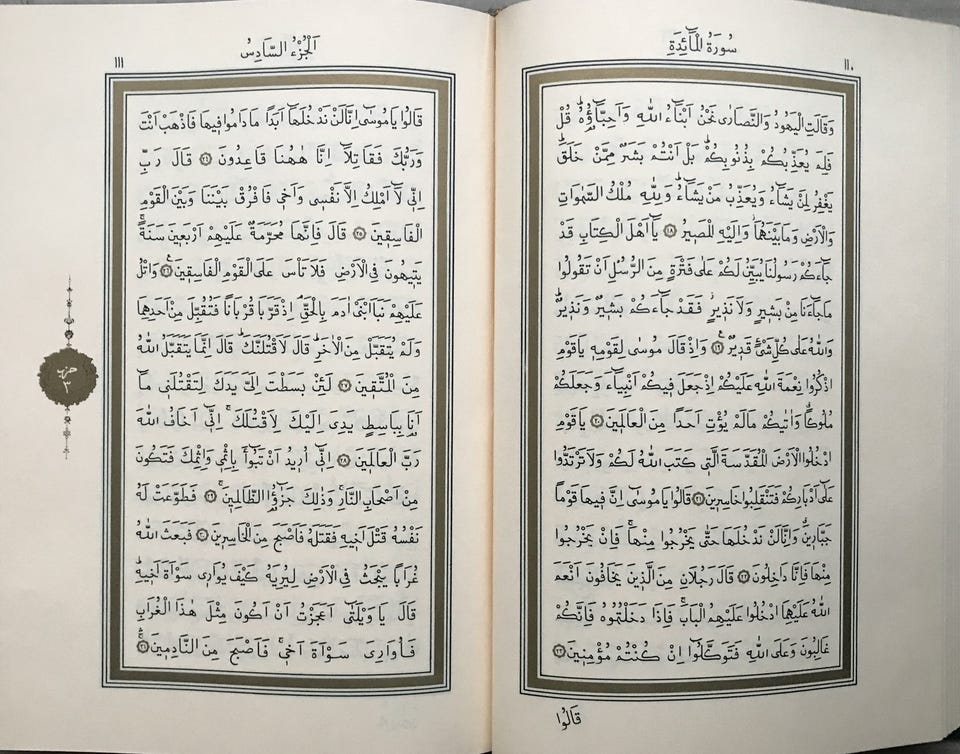 سُورَةُ الْمَائِدَةِ
١١٠
وَقَالَتِ الْيَهُودُ وَالنَّصَارٰى نَحْنُ اَبْنَاءُ اللّٰهِ وَاَحِبَّاؤُهُ قُلْ
فَلِمَ يُعَذِّبُكُمْ بِذُنُوبِكُمْ بَلْ اَنْتُمْ بَشَرٌ مِمَّنْ خَلَقَ
يَغْفِرُ لِمَنْ يَشَاءُ وَيُعَذِّبُ مَنْ يَشَاءُ وَلِلّٰهِ مُلْكُ السَّمٰوَاتِ
وَالْاَرْضِ وَمَا بَيْنَهُمَا وَاِلَيْهِ الْمَصِيرُ ﴿١٨﴾ يَا اَهْلَ الْكِتَابِ قَدْ
جَاءَكُمْ رَسُولُنَا يُبَيِّنُ لَكُمْ عَلٰى فَتْرَةٍ مِنَ الرُّسُلِ اَنْ تَقُولُوا
مَا جَاءَنَا مِنْ بَشِيرٍ وَلَا نَذِيرٍ فَقَدْ جَاءَكُمْ بَشِيرٌ وَنَذِيرٌ
وَاللّٰهُ عَلٰى كُلِّ شَيْءٍ قَدِيرٌ ﴿١٩﴾ وَاِذْ قَالَ مُوسٰى لِقَوْمِهِ يَا قَوْمِ
اذْكُرُوا نِعْمَةَ اللّٰهِ عَلَيْكُمْ اِذْ جَعَلَ فِيكُمْ اَنْبِيَاءَ وَجَعَلَكُمْ
مُلُوكًا وَاٰتٰيكُمْ مَا لَمْ يُؤْتِ اَحَدًا مِنَ الْعَالَمِينَ ﴿٢٠﴾ يَا قَوْمِ
ادْخُلُوا الْاَرْضَ الْمُقَدَّسَةَ الَّتِي كَتَبَ اللّٰهُ لَكُمْ وَلَا تَرْتَدُّوا
عَلٰى اَدْبَارِكُمْ فَتَنْقَلِبُوا خَاسِرِينَ ﴿٢١﴾ قَالُوا يَا مُوسٰى اِنَّ فِيهَا قَوْمًا
جَبَّارِينَ وَاِنَّا لَنْ نَدْخُلَهَا حَتّٰى يَخْرُجُوا مِنْهَا فَاِنْ يَخْرُجُوا
مِنْهَا فَاِنَّا دَاخِلُونَ ﴿٢٢﴾ قَالَ رَجُلَانِ مِنَ الَّذِينَ يَخَافُونَ اَنْعَمَ
اللّٰهُ عَلَيْهِمَا ادْخُلُوا عَلَيْهِمُ الْبَابَ فَاِذَا دَخَلْتُمُوهُ فَاِنَّكُمْ
غَالِبُونَ وَعَلَى اللّٰهِ فَتَوَكَّلُوا اِنْ كُنْتُمْ مُؤْمِنِينَ ﴿٢٣﴾
قَالُوا
اَلْجُزْءُ السَّادِسُ
١١١
قَالُوا يَا مُوسٰى اِنَّا لَنْ نَدْخُلَهَا اَبَدًا مَا دَامُوا فِيهَا فَاذْهَبْ اَنْتَ
وَرَبُّكَ فَقَاتِلَا اِنَّا هٰهُنَا قَاعِدُونَ ﴿٢٤﴾ قَالَ رَبِّ
اِنِّي لَا اَمْلِكُ اِلَّا نَفْسِي وَاَخِي فَافْرُقْ بَيْنَنَا وَبَيْنَ الْقَوْمِ
الْفَاسِقِينَ ﴿٢٥﴾ قَالَ فَاِنَّهَا مُحَرَّمَةٌ عَلَيْهِمْ اَرْبَعِينَ سَنَةً
يَتِيهُونَ فِي الْاَرْضِ فَلَا تَأْسَ عَلَى الْقَوْمِ الْفَاسِقِينَ ﴿٢٦﴾ وَاتْلُ
عَلَيْهِمْ نَبَاَ ابْنَيْ اٰدَمَ بِالْحَقِّ اِذْ قَرَّبَا قُرْبَانًا فَتُقُبِّلَ مِنْ اَحَدِهِمَا
وَلَمْ يُتَقَبَّلْ مِنَ الْاٰخَرِ قَالَ لَاَقْتُلَنَّكَ قَالَ اِنَّمَا يَتَقَبَّلُ اللّٰهُ
مِنَ الْمُتَّقِينَ ﴿٢٧﴾ لَئِنْ بَسَطْتَ اِلَيَّ يَدَكَ لِتَقْتُلَنِي مَا
اَنَا بِبَاسِطٍ يَدِيَ اِلَيْكَ لِاَقْتُلَكَ اِنِّي اَخَافُ اللّٰهَ
رَبَّ الْعَالَمِينَ ﴿٢٨﴾ اِنِّي اُرِيدُ اَنْ تَبُوأَ بِاِثْمِي وَاِثْمِكَ فَتَكُونَ
مِنْ اَصْحَابِ النَّارِ وَذٰلِكَ جَزٰؤُا الظَّالِمِينَ ﴿٢٩﴾ فَطَوَّعَتْ لَهُ
نَفْسُهُ قَتْلَ اَخِيهِ فَقَتَلَهُ فَاَصْبَحَ مِنَ الْخَاسِرِينَ ﴿٣٠﴾ فَبَعَثَ اللّٰهُ
غُرَابًا يَبْحَثُ فِي الْاَرْضِ لِيُرِيَهُ كَيْفَ يُوَارِي سَوْاَةَ اَخِيهِ
قَالَ يَا وَيْلَتٰى اَعَجَزْتُ اَنْ اَكُونَ مِثْلَ هٰذَا الْغُرَابِ
فَاُوَارِيَ سَوْاَةَ اَخِي فَاَصْبَحَ مِنَ النَّادِمِينَ ﴿٣١﴾
حزب
٣